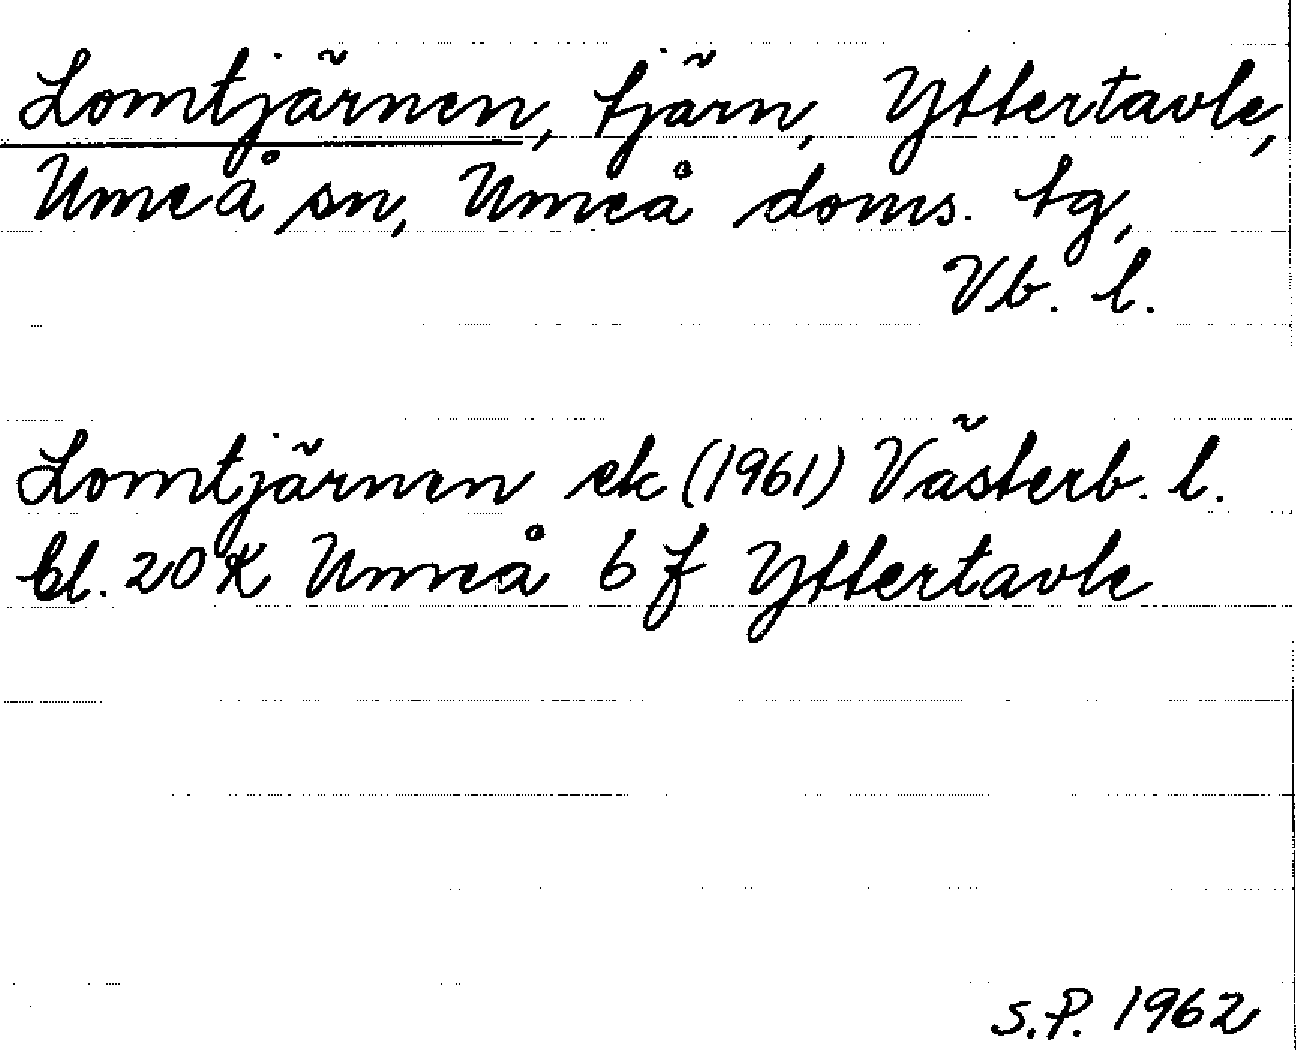 Lomtjärnen, tjärn, Yttertavle,
Umeå sn, Umeå doms. tg,
Vb. l.
Lomtjärnen ek (1961) Västerb. l.
bl. 20 K Umeå 6 f Yttertavle
S.P. 1962